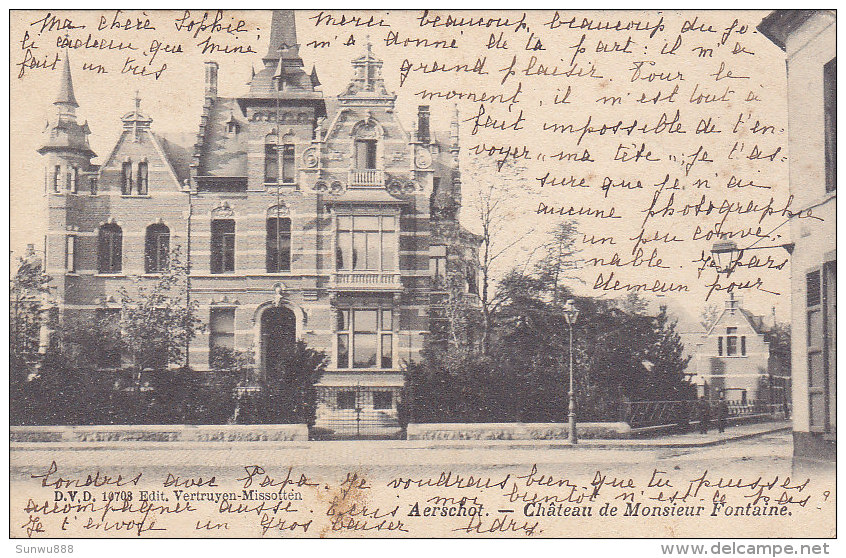 Ma chère Sophie, Merci beaucoup, beaucoup du jo-
li cadeau que Mimi m'a donné de ta part: il m'a
fait un très grand plaisir. Pour le
moment, il m'est tout à
fait impossible de t'en-
voyer "ma tête"; je t'as-
sure que je n'ai
aucune photographie
un peu conve-
nable. Je pars
demain pour
Londres avec Papa. Je voudrais bien que tu puisses
D.V.D. 10703 Edit. Vertruyen-Missotten
accompagner aussi. Ecris moi bientôt n'est-ce pas?
Aerschot. — Château de Monsieur Fontaine.
Je t'envoie un gros baiser
© Sunwu888
https://www.delcampe.net